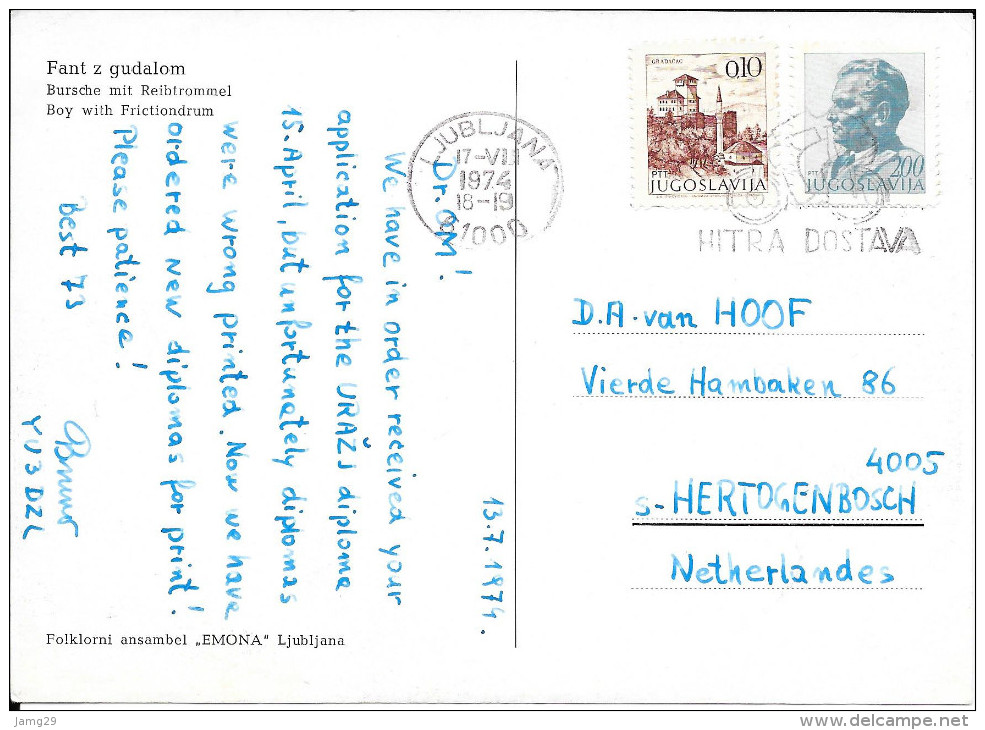 Fant z gudalom
Bursche mit Reibtrommel
Boy with Frictiondrum
13.7.1974.
Dr. OM!
We have in order received your
application for the URAŽJ diploma
15. April, but unfortunately diplomas
were wrong printed. Now we have
ordered new diplomas for print!
Please patience!
Best 73
YU3DZL
Folklorni ansambel „EMONA" Ljubljana
LJUBLJANA
1974
18-19
61000
GRADAČAC
0,10
PTT
JUGOSLAVIJA
200
PTT
JUGOSLAVIJA
HITRA DOSTAVA
D.A. van HOOF
Vierde Hambaken 86
4005
s-HERTOGENBOSCH
Netherlandes
Jamg29
www.delcampe.net